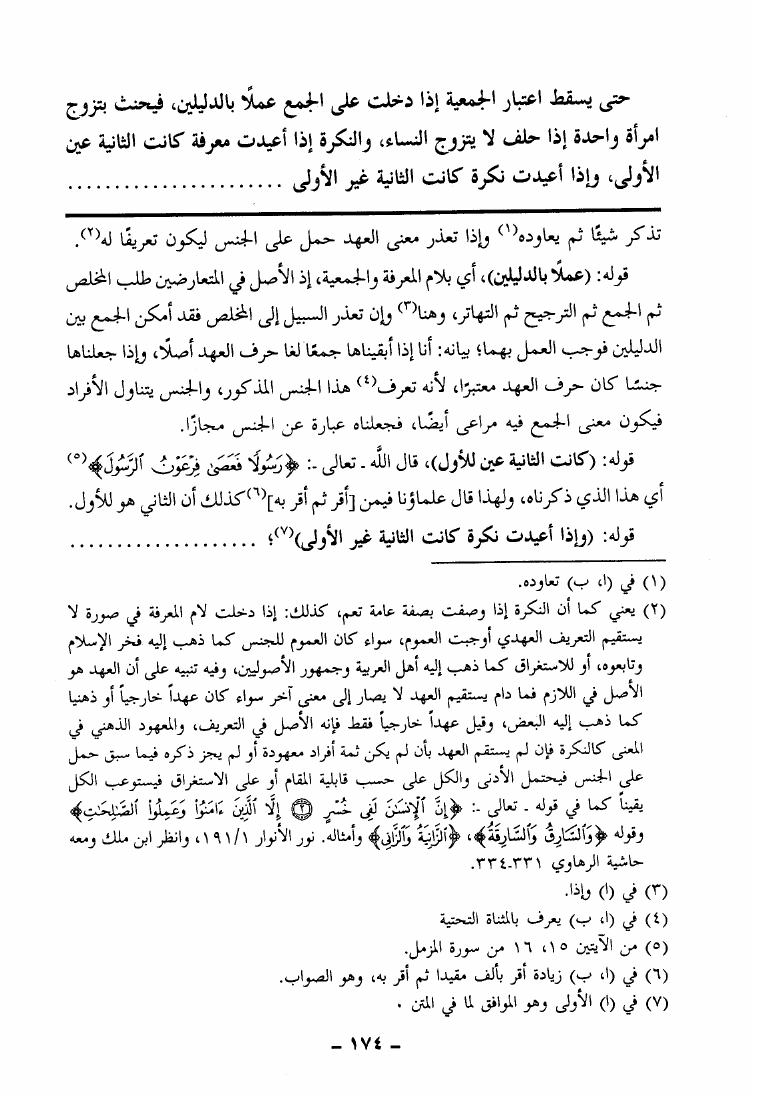 حتى يسقط اعتبار الجمعية إذا دخلت على الجمع عملًا بالدليلين، فيحنث بتزوج
امرأة واحدة إذا حلف لا يتزوج النساء، والنكرة إذا أعيدت معرفة كانت الثانية عين
الأولى، وإذا أعيدت نكرة كانت الثانية غير الأولى .......................
تذكر شيئًا ثم يعاوده(١) وإذا تعذر معنى العهد حمل على الجنس ليكون تعريفًا له(٢).
قوله: (عملًا بالدليلين)، أي بلام المعرفة والجمعية، إذ الأصل في المتعارضين طلب المخلص
ثم الجمع ثم الترجيح ثم التهاتر، وهنا(٣) وإن تعذر السبيل إلى المخلص فقد أمكن الجمع بين
الدليلين فوجب العمل بهما؛ بيانه: أنا إذا أبقيناها جمعًا لغا حرف العهد أصلًا، وإذا جعلناها
جنسًا كان حرف العهد معتبرًا، لأنه تعرف(٤) هذا الجنس المذكور، والجنس يتناول الأفراد
فيكون معنى الجمع فيه مراعى أيضًا، فجعلناه عبارة عن الجنس مجازًا.
قوله: (كانت الثانية عين للأول)، قال اللَّه ـ تعالى ـ: ﴿رَسُولًا فَعَصَىٰ فِرْعَوْنُ ٱلرَّسُولَ﴾(٥)
أي هذا الذي ذكرناه، ولهذا قال علماؤنا فيمن [أقر ثم أقر به](٦) كذلك أن الثاني هو للأول.
قوله: (وإذا أعيدت نكرة كانت الثانية غير الأولى)(٧)؛ ....................
(١) في (ا، ب) تعاوده.
(٢) يعني كما أن النكرة إذا وصفت بصفة عامة تعم، كذلك: إذا دخلت لام المعرفة في صورة لا
يستقيم التعريف العهدي أوجبت العموم، سواء كان العموم للجنس كما ذهب إليه فخر الإسلام
وتابعوه، أو للاستغراق كما ذهب إليه أهل العربية وجمهور الأصوليين، وفيه تنبيه على أن العهد هو
الأصل في اللازم فما دام يستقيم العهد لا يصار إلى معنى آخر سواء كان عهداً خارجياً أو ذهنيا
كما ذهب إليه البعض، وقيل عهداً خارجياً فقط فإنه الأصل في التعريف، والمعهود الذهني في
المعنى كالنكرة فإن لم يستقم العهد بأن لم يكن ثمة أفراد معهودة أو لم يجز ذكره فيما سبق حمل
على الجنس فيحتمل الأدنى والكل على حسب قابلية المقام أو على الاستغراق فيستوعب الكل
يقيناً كما في قوله ـ تعالى ـ: ﴿إِنَّ ٱلْإِنسَٰنَ لَفِى خُسْرٍ ۝٢ إِلَّا ٱلَّذِينَ ءَامَنُوا۟ وَعَمِلُوا۟ ٱلصَّٰلِحَٰتِ﴾
وقوله ﴿وَٱلسَّارِقُ وَٱلسَّارِقَةُ﴾، ﴿ٱلزَّانِيَةُ وَٱلزَّانِى﴾ وأمثاله. نور الأنوار ١/١٩١، وانظر ابن ملك ومعه
حاشية الرهاوي ٣٣١ـ٣٣٤.
(٣) في (ا) وإذا.
(٤) في (ا، ب) يعرف بالمثناة التحتية
(٥) من الآيتين ١٥، ١٦ من سورة المزمل.
(٦) في (ا، ب) زيادة أقر بألف مقيدا ثم أقر به، وهو الصواب.
(٧) في (ا) الأولى وهو الموافق لما في المتن .
ـ ١٧٤ ـ